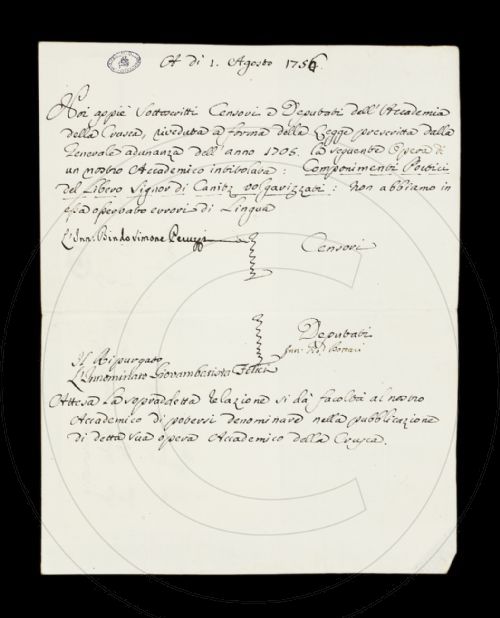 A dì 1. Agosto 1756.
Noi appiè Sottoscritti Censori, e Deputati dell'Accademia
della Crusca, riveduta a forma della Legge prescritta dalla
Generale adunanza dell'anno 1705. la seguente Opera di
un nostro Accademico intitolata: Componimenti Poetici
del Libero Signor di Canitz volgarizzati: non abbiamo in
essa osservato errori di Lingua
L'Inn. Bindo Simone Peruzzi
Censori
Deputati
Inn. Bottari
Il Ripurgato
L'Innominato Giovambatista Felici
Attesa la sopraddetta relazione si dà facoltà al nostro
Accademico di potersi denominare nella pubblicazione
di detta sua opera Accademico della Crusca.